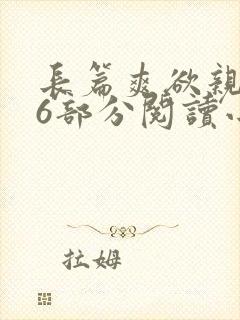 長篇爽欲親
6部分閱讀小
拉姆